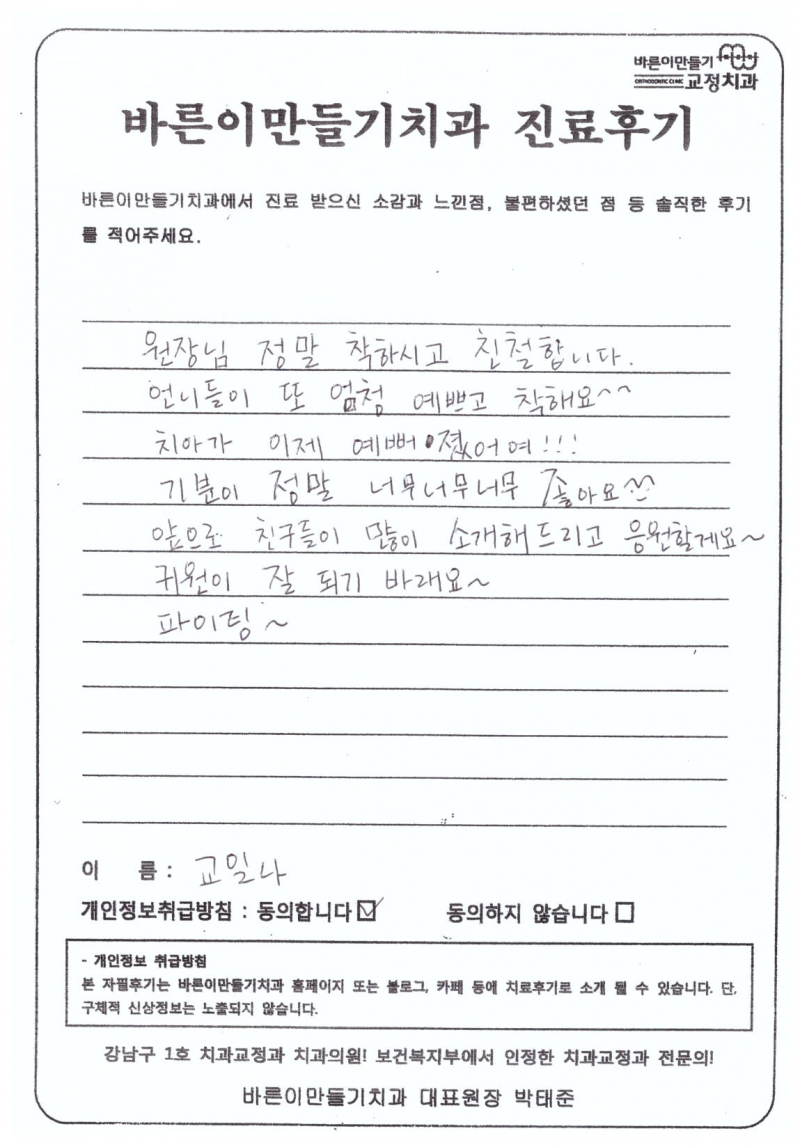 바른이만들기
ORTHODONTIC CLINIC 교정치과
바른이만들기치과 진료후기
바른이만들기치과에서 진료 받으신 소감과 느낀점, 불편하셨던 점 등 솔직한 후기
를 적어주세요.
원장님 정말 착하시고 친철합니다.
언니들이 또 엄청 예쁘고 착해요^^
치아가 이제 예뻐졌어여!!!
기분이 정말 너무너무너무 좋아요^^
앞으로 친구들이 많이 소개해 드리고 응원할게요~
귀원이 잘 되기 바래요~
파이팅~
이 름 : 교일나
개인정보취급방침 : 동의합니다 ☑ 동의하지 않습니다 □
- 개인정보 취급방침
본 자필후기는 바른이만들기치과 홈페이지 또는 블로그, 카페 등에 치료후기로 소개 될 수 있습니다. 단,
구체적 신상정보는 노출되지 않습니다.
강남구 1호 치과교정과 치과의원! 보건복지부에서 인정한 치과교정과 전문의!
바른이만들기치과 대표원장 박태준